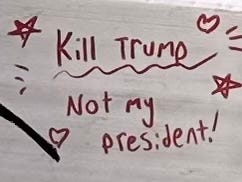 Kill Trump
Not my
president!